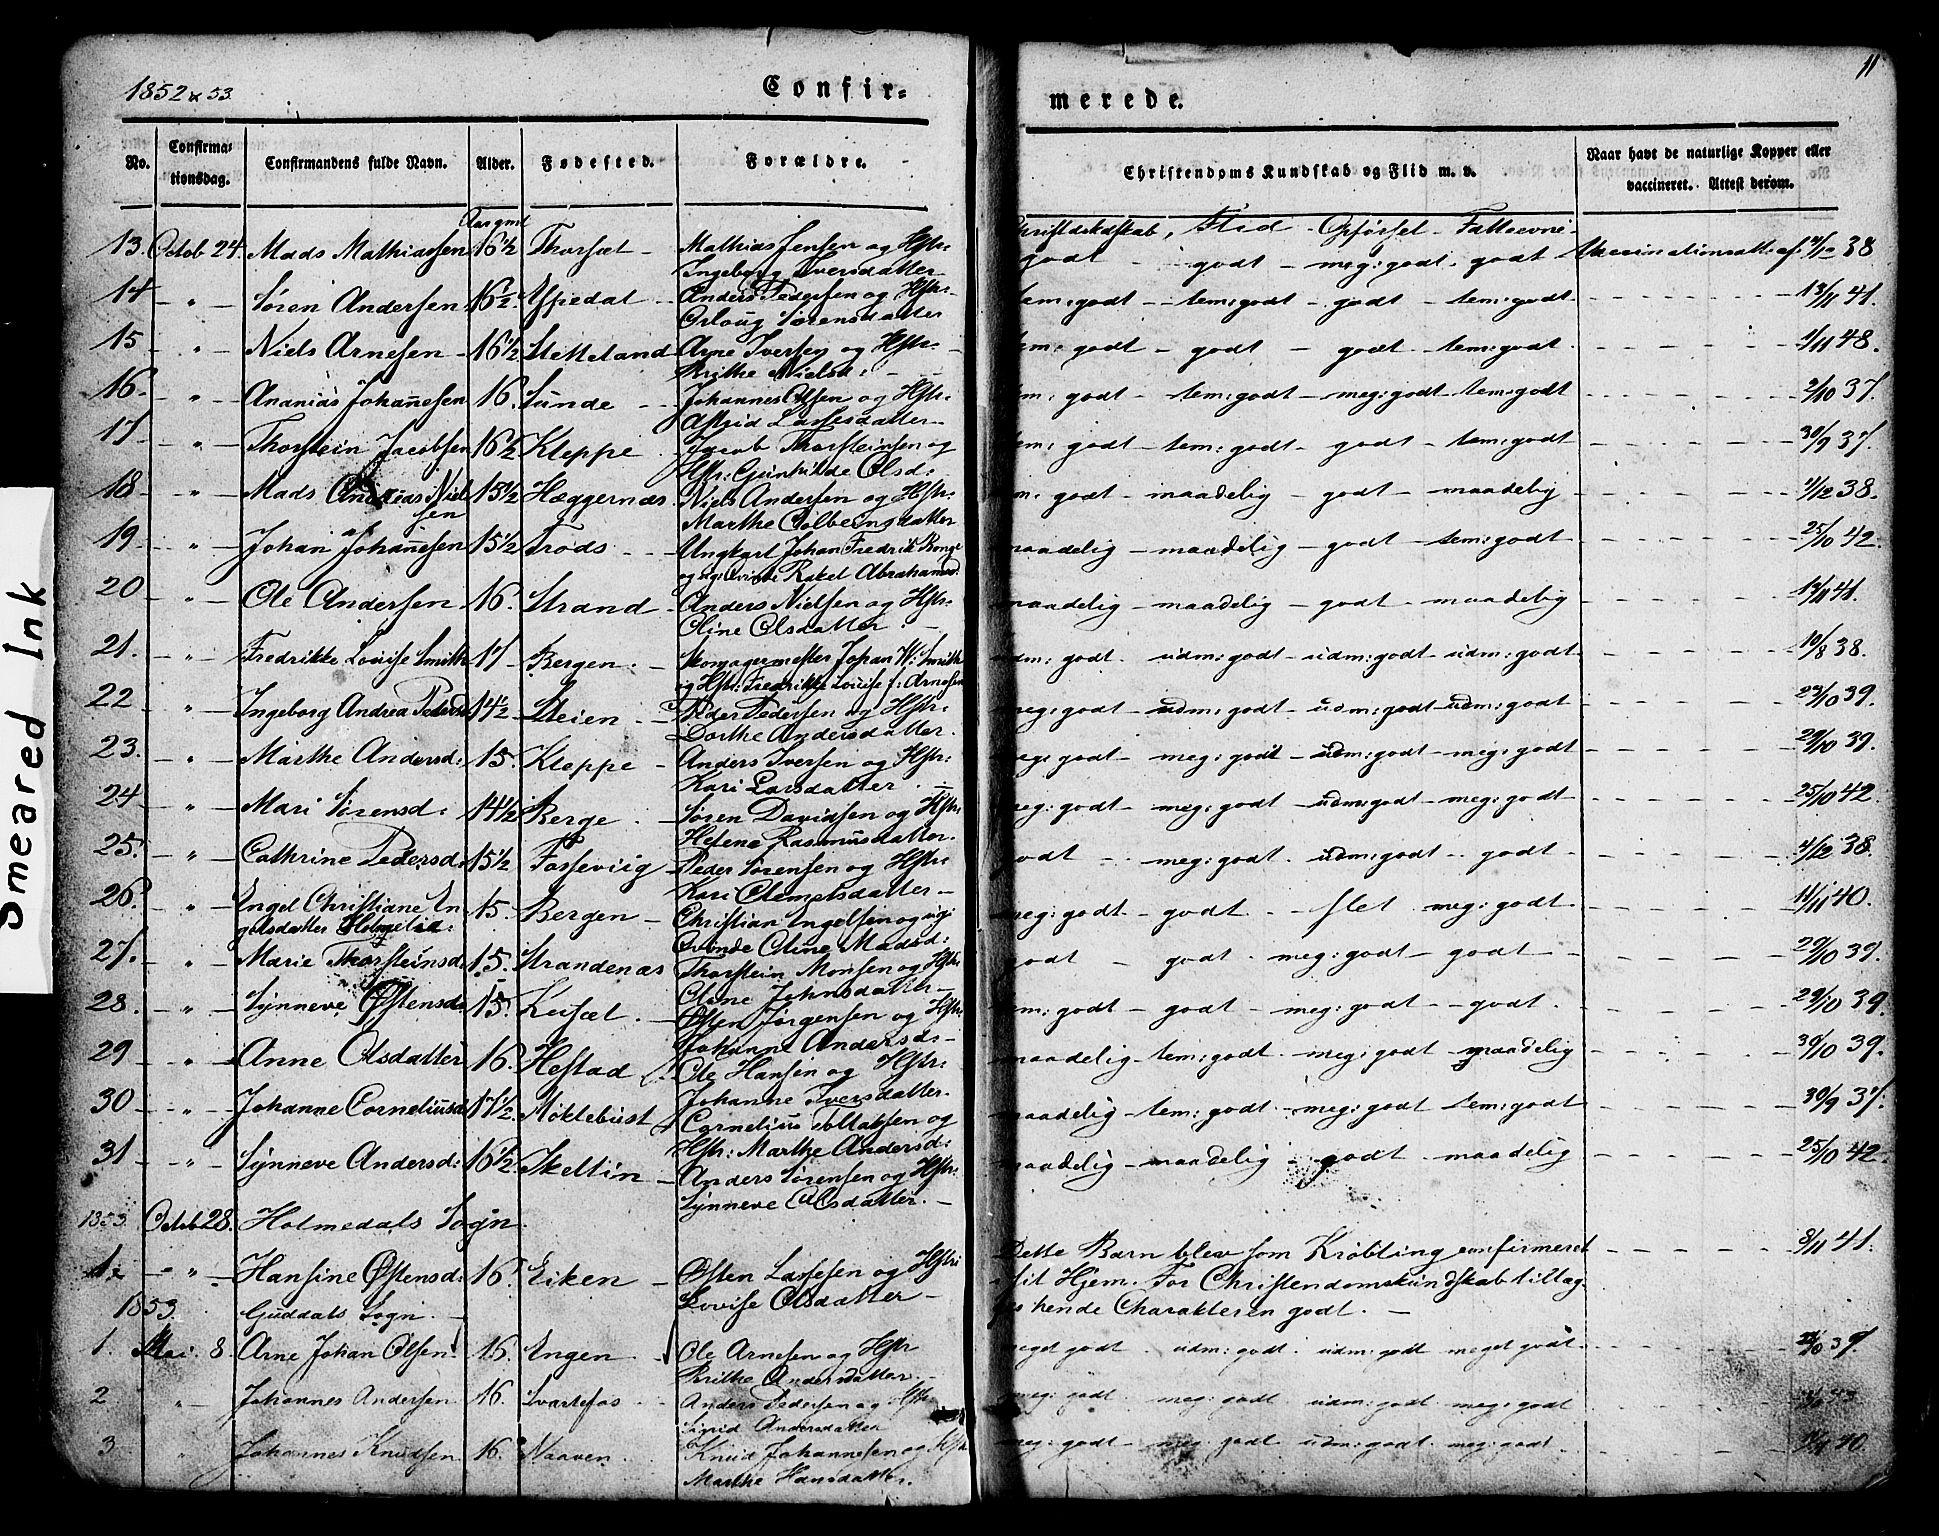 11
1852 & 53.
Confir-
merede.
No.
Confirmationsdag.
Confirmandens fulde Navn.
Alder.
Fødested.
Forældre.
Christendoms Kundskab og Flid m. v.
Naar havt de naturlige Kopper eller
vaccineret. Attest derom.
Smeared Ink
13. Octob 24. Mads Mathiassen 16½ Thorsæt Mathias Jensen og Hstr: godt - godt - meg: godt. godt 38
Ingeborg Iversdatter
14 " Søren Andersen 16½ Anders Pedersen og Hstr: tem: godt - tem: godt - godt - tem: godt 13/11 41.
Sørensdatter
15 " Niels Arnesen 16½ Arne Iversen og Hstr: tem: godt - godt - godt - tem: godt 48.
Brithe Nielsd:
16. " Ananias Johannesen 16. Sunde Johannes Olsen og Hstr: godt - tem: godt - meg: godt tem: godt 2/10 37.
Astrid Lassesdatter
17 " Thorstein Jacobsen 16½ Kleppe Jacob Thorsteinsen og godt - tem: godt - godt - tem: godt 30/9 37.
Hstr: Gunhilde Olsd:
18 " Mads Niel 15½ Hæggernæs Niels Andersen og Hstr: godt - maadelig - godt - maadelig 4/12 38.
sen
Marthe
19 " Johan Johannesen 15½ Trods Ungkarl Johan Fredrik maadelig - maadelig - godt - tem: godt 25/10 42.
Rakel Abrahamsd:
20 " Ole Andersen 16. Strand Anders Nielsen og Hstr: maadelig - maadelig - godt - maadelig 41.
Oline Olsdatter
21. " Fredrikke Louise Smith 17 Bergen. Skomagermester Johan W: Smith udm: godt. udm: godt - udm: godt udm: godt 10/8 38.
og Hstr: Fredrikke Louise f: Arnesen
22 " Ingeborg Andrea Peders 14½ Steien Peder Pedersen og Hstr: meg: godt - udm: godt - udm: godt - udm: godt 23/10 39.
Dorthe Andersdatter.
23. " Marthe Andersd: 15. Kleppe Anders Iversen og Hstr: meg: godt - meg: godt - udm: godt - meg: godt 29/10 39.
Kari Larsdatter
24 " Mari Sørensd: 14½ Berge Søren Davidsen og Hstr meg: godt - meg: godt - udm: godt - meg: godt 25/10 42.
Helena Rasmusdatter.
25. " Cathrine Pedersd: 15½ Peder Sørensen og Hstr: godt - meg: godt. udm: godt. godt 4/12 38.
Kari Clemetsdatter
26. " Engel Christiane En 15. Bergen Christian Engelsen og meg: godt - godt - slet meg: godt 11/11 40.
Oline Madsd:
27. " Marie Thorsteinsd. 15. Strandenæs Thorstein Monsen og Hstr godt - godt. meg: godt - godt 29/10 39.
Oline Johnsdatter
28. " Synneve Østensd: 15. Østen Jørgensen og Hstr tem: godt - godt - meg: godt - godt 29/10 39.
Johanne Andersd:
29 " Anne Olsdatter 16. Hestad Ole Hansen og Hstr: maadelig - tem: godt. meg: godt - maadelig 30/10 39.
Johanne Iversdatter.
30 " Johanne Corneliusd: 17½ Møklebust Cornelius Tollaksen og maadelig - tem: godt - meg: godt tem: godt 30/9 37.
Hstr: Marthe Andersd:
31 " Synneve Andersd: 16½ Anders Sørensen og Hstr: maadelig - maadelig godt - maadelig 25/10 42.
Synneve Olsdatter.
1853. Octob 28. Holmedals Sogn
1. " Hansine Østensd: 16. Eiken Østen Lassesen og Hstr: Dette Barn blev som Krøbling confirmeret 8/11 41.
Lovise Olsdatter i sit Hjem. For Christendomskundskab tillag
1853. Guddals Sogn. hende Charakteren godt.
1. Mai. 8. Arne Johan Olsen 15. Engen Ole Arnesen og Hstr meget godt. udm: godt. udm: godt meget godt.
Brithe Andersdatter.
2 " Johannes Andersen 16. Svartefos Anders Pedersen og Hstr meg: godt. meg: godt udm: godt meg: godt
Sigrid Andersdatter
3 " Johannes Knudsen 16. Naaven. Knud Johannesen og Hstr meg: godt - meg: godt udm: godt. meg: godt. 40.
Marthe Hansdatter.